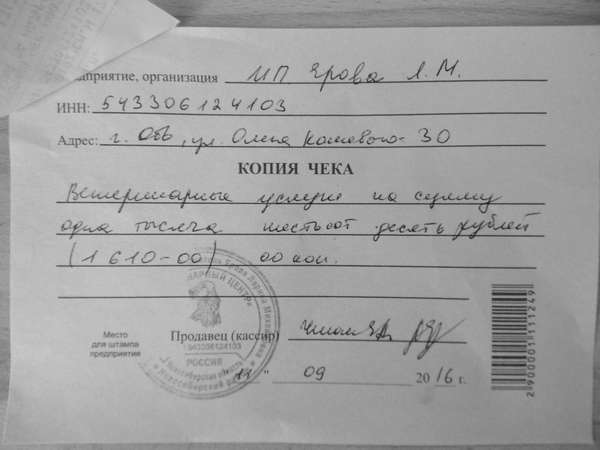 едприятие, организация ИП Ярова Л.М.
ИНН: 543306124103
Адрес: г. Обь, ул. Олега Кошевого-30
КОПИЯ ЧЕКА
Ветеринарные услуги на сумму
одна тысяча шестьсот десять рублей
(1 610-00) 00 коп.
Место
для штампа
предприятия
Продавец (кассир)
"11" 09 2016 г.
НАРНЫЙ ЦЕНТР
543306124103
РОССИЯ
Новосибирская область
2900001111249